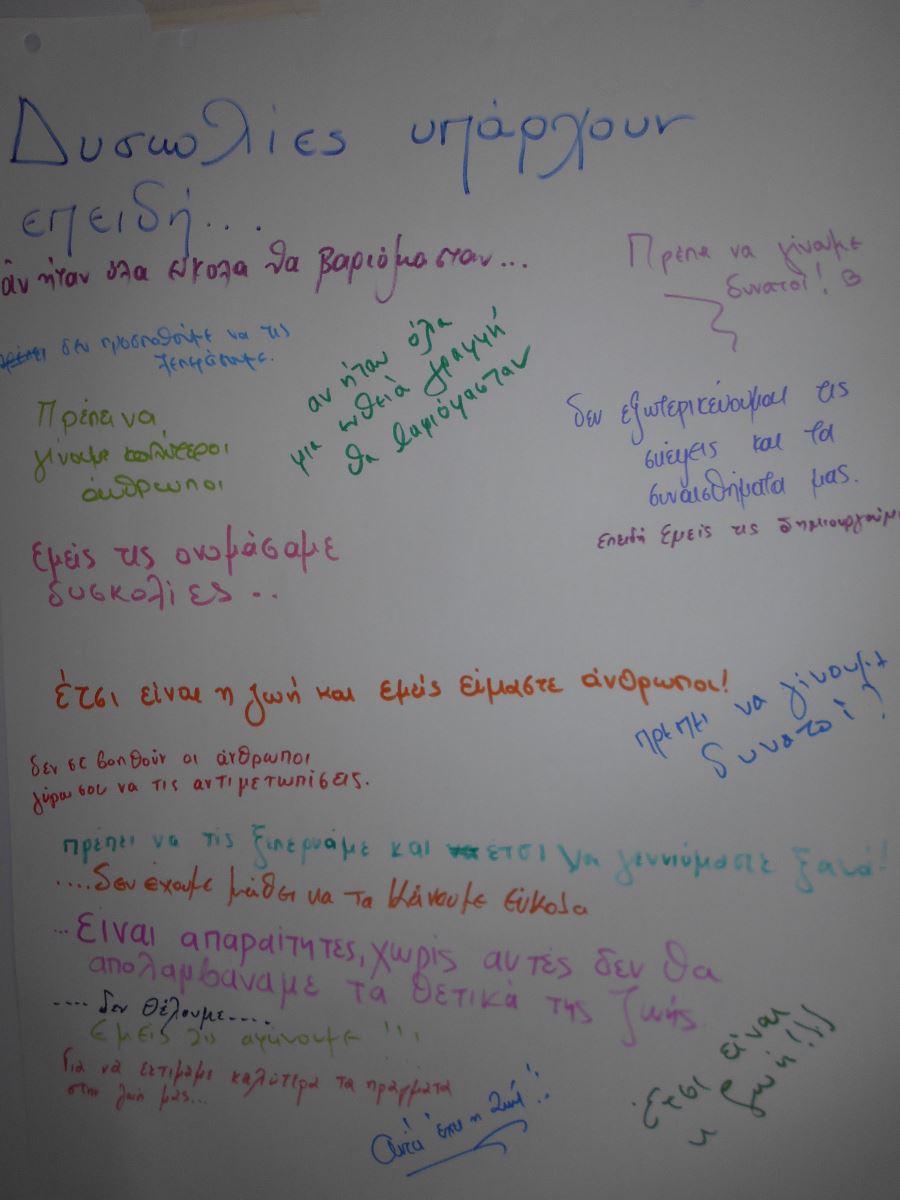 Δυσκολίες υπάρχουν
επειδή...
ἀν ήταν όλα εύκολα θα βαριόμασταν...
Πρέπει να γίνουμε
δυνατοί!
δεν προσπαθούμε να τις
ξεπεράσουμε.
αν ήταν όλα
μια ευθειά γραμμή
θα βαριόμασταν
Πρέπει να
γίνουμε καλύτεροι
άνθρωποι
δεν εξωτερικεύουμαι τις
σκέψεις και τα
συναισθήματα μας.
επειδή εμείς τις δημιουργούμε
εμείς τις ονομάσαμε
δυσκολίες..
έτσι είναι η ζωή και εμείς είμαστε άνθρωποι!
πρέπει να γίνουμε
δυνατοί!
δεν σε βοηθούν οι άνθρωποι
γύρω σου να τις αντιμετωπίσεις.
πρέπει να τις ξεπερνάμε και έτσι να γεννιόμαστε ξανά!
....δεν έχουμε μάθει να τα κάνουμε εύκολα
...είναι απαραίτητες, χωρίς αυτές δεν θα
απολαμβάναμε τα θετικά της ζωής
....δεν θέλουμε....
εμείς τις αφήνουμε!!!
Για να εκτιμάμε καλύτερα τα πράγματα
στην ζωή μας...
Αυτά έχει η ζωή!!
Έτσι είναι
η ζωή!!!